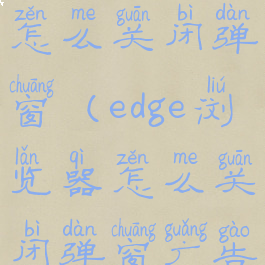 zěn me guān bì dàn
怎么关闭弹
chuāng liú
窗（edge浏
lǎn qì zěn me guān
览器怎么关
bì dàn chuāng guǎng gào
闭弹窗广告